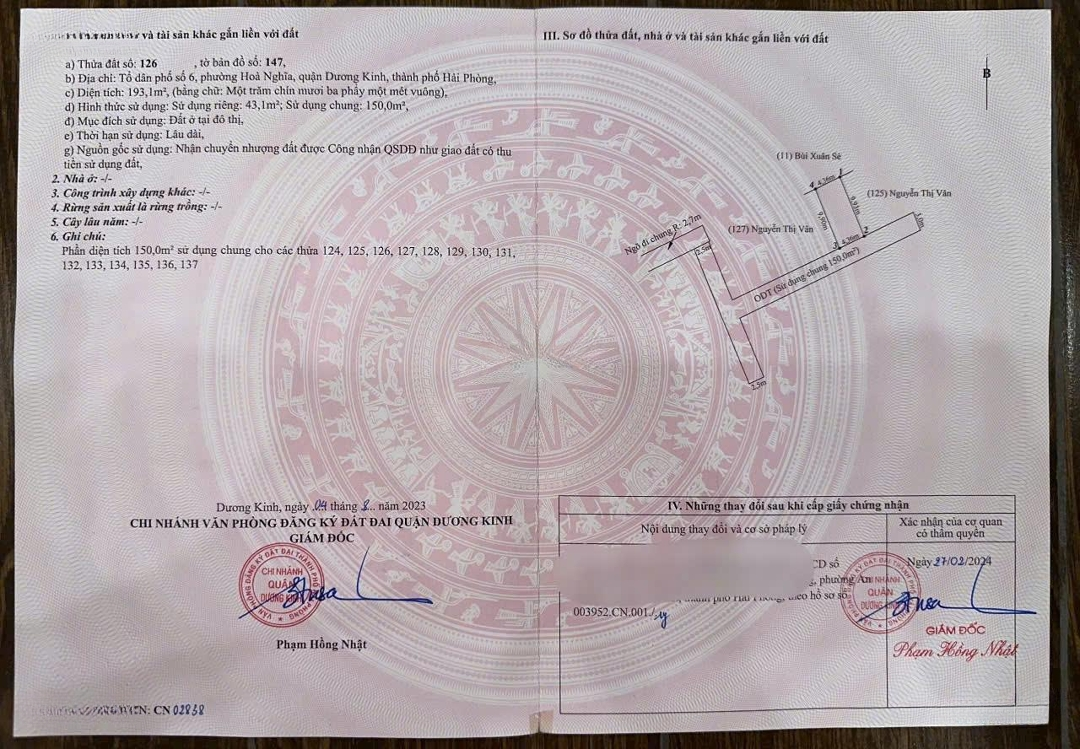 và tài sản khác gắn liền với đất
a) Thửa đất số: 126 , tờ bản đồ số: 147,
b) Địa chỉ: Tổ dân phố số 6, phường Hoà Nghĩa, quận Dương Kinh, thành phố Hải Phòng,
c) Diện tích: 193,1m², (bằng chữ: Một trăm chín mươi ba phẩy một mét vuông),
d) Hình thức sử dụng: Sử dụng riêng: 43,1m²; Sử dụng chung: 150,0m²,
đ) Mục đích sử dụng: Đất ở tại đô thị,
e) Thời hạn sử dụng: Lâu dài,
g) Nguồn gốc sử dụng: Nhận chuyển nhượng đất được Công nhận QSDĐ như giao đất có thu
tiền sử dụng đất,
2. Nhà ở: -/-
3. Công trình xây dựng khác: -/-
4. Rừng sản xuất là rừng trồng: -/-
5. Cây lâu năm: -/-
6. Ghi chú:
Phần diện tích 150,0m² sử dụng chung cho các thửa 124, 125, 126, 127, 128, 129, 130, 131,
132, 133, 134, 135, 136, 137
Dương Kinh, ngày 04 tháng 8 năm 2023
CHI NHÁNH VĂN PHÒNG ĐĂNG KÝ ĐẤT ĐAI QUẬN DƯƠNG KINH
GIÁM ĐỐC
VĂN PHÒNG ĐĂNG KÝ ĐẤT ĐAI THÀNH PHỐ HẢI PHÒNG
CHI NHÁNH
QUẬN
DƯƠNG KINH
Phạm Hồng Nhật
CN 02838
III. Sơ đồ thửa đất, nhà ở và tài sản khác gắn liền với đất
B
(11) Bùi Xuân Sè
4 4,26m 1
(125) Nguyễn Thị Vân
9,91m
9,90m
3,0m
Ngõ đi chung R: 2,7m
(127) Nguyễn Thị Vân
3 4,26m 2
2,5m
ODT (Sử dụng chung 150,0m²)
2,5m
IV. Những thay đổi sau khi cấp giấy chứng nhận
Nội dung thay đổi và cơ sở pháp lý
Xác nhận của cơ quan
có thẩm quyền
CD số
Ngày 27/02/2024
, phường An
thành phố Hải Phòng, theo hồ sơ số
003952.CN.001./.
CHI NHÁNH
QUẬN
DƯƠNG KINH
GIÁM ĐỐC
Phạm Hồng Nhật